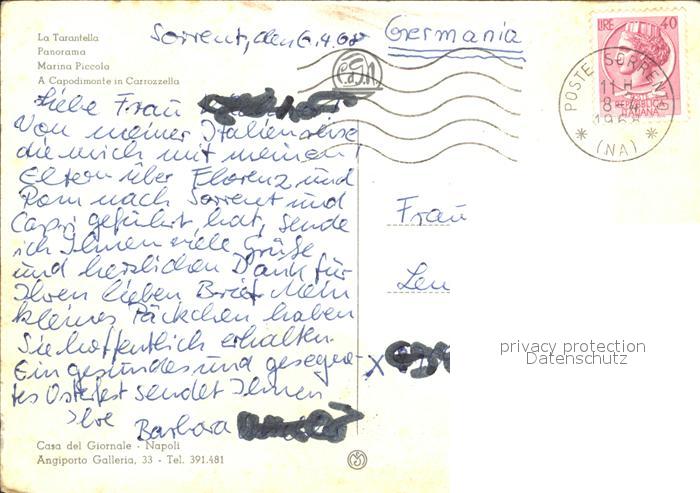 La Tarantella
Panorama
Marina Piccola
A Capodimonte in Carrozzella
Sorrent, den 6.4.68
Germania
LIRE 40
POSTE REPUBBLICA ITALIANA
POSTE SORRENTO
11 H
8-4
1968
(NA)
Liebe Frau
Von meiner Italienreise
die mich mit meinen
Eltern über Florenz und
Rom nach Sorrent und
Capri geführt hat, sende
ich Ihnen viele Grüße
und herzlichen Dank für
Ihren lieben Brief. Mein
kleines Päckchen haben
Sie hoffentlich erhalten.
Ein gesundes und gesegne-
tes Osterfest sendet Ihnen
Ihre
Barbara
Frau
Len
x
privacy protection
Datenschutz
Casa del Giornale - Napoli
Angiporto Galleria, 33 - Tel. 391.481